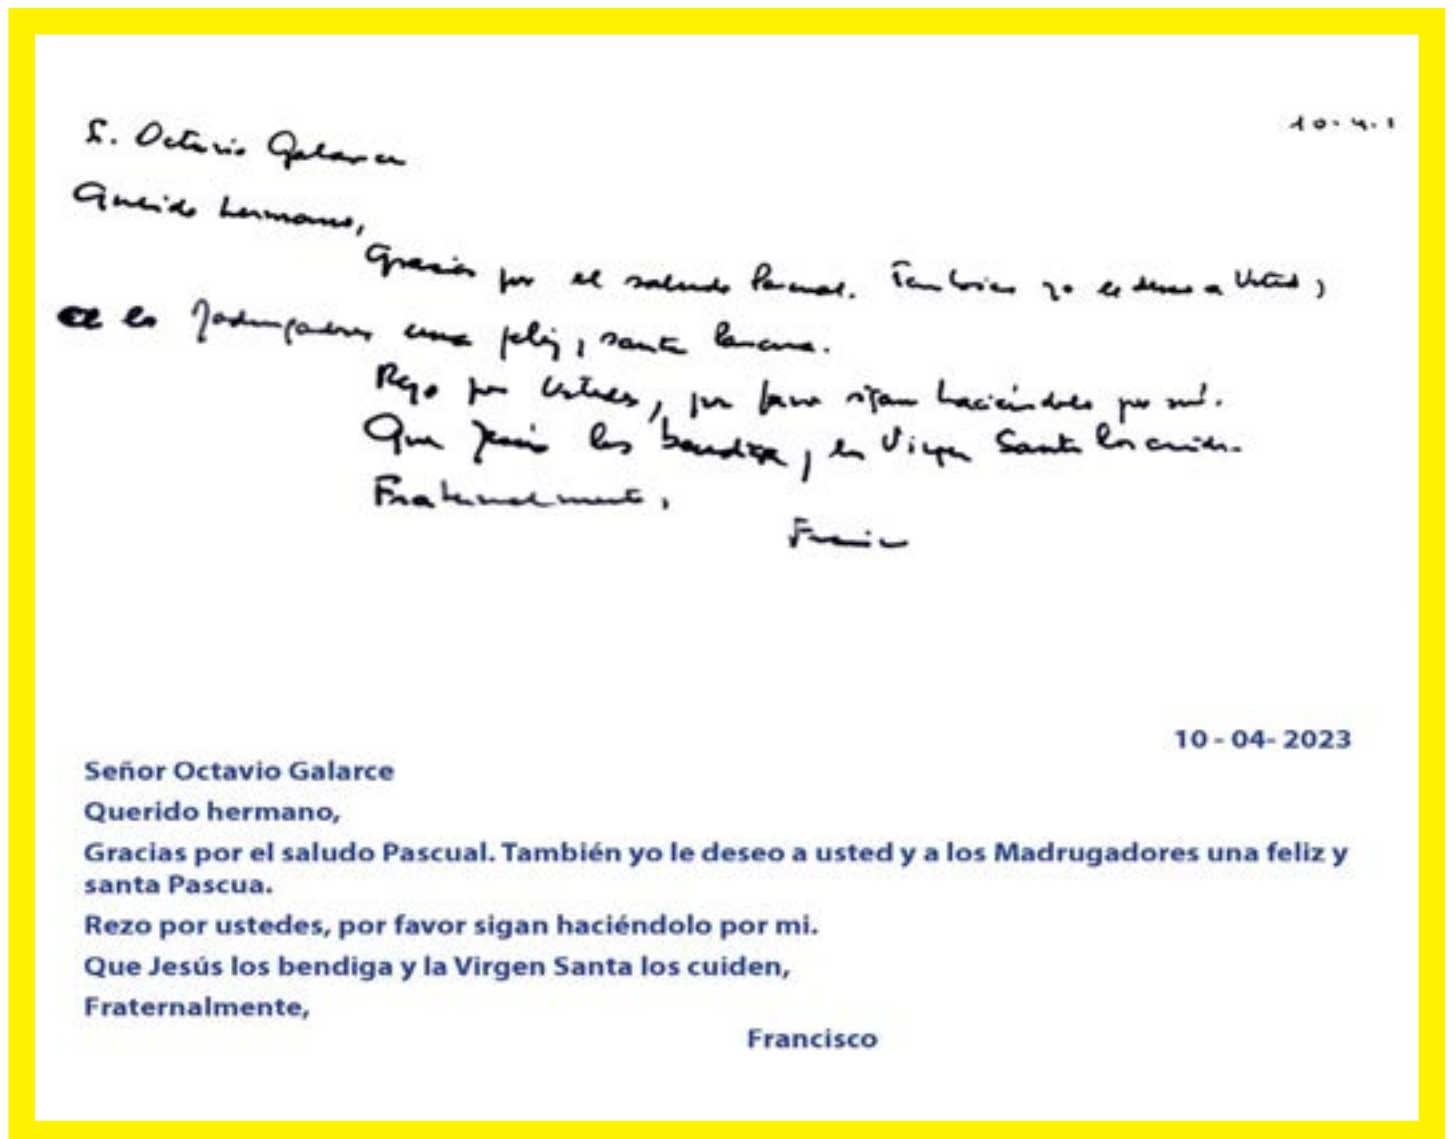 10-4-
S. Octavio Galarce
Querido hermano,
Gracias por el saludo Pascual. También yo le deseo a Usted y
a los Madrugadores una feliz y santa Pascua.
Rezo por Ustedes, por favor sigan haciéndolo por mí.
Que Jesús los bendiga y la Virgen Santa los cuide.
Fraternalmente,
10 - 04- 2023
Señor Octavio Galarce
Querido hermano,
Gracias por el saludo Pascual. También yo le deseo a usted y a los Madrugadores una feliz y
santa Pascua.
Rezo por ustedes, por favor sigan haciéndolo por mi.
Que Jesús los bendiga y la Virgen Santa los cuiden,
Fraternalmente,
Francisco